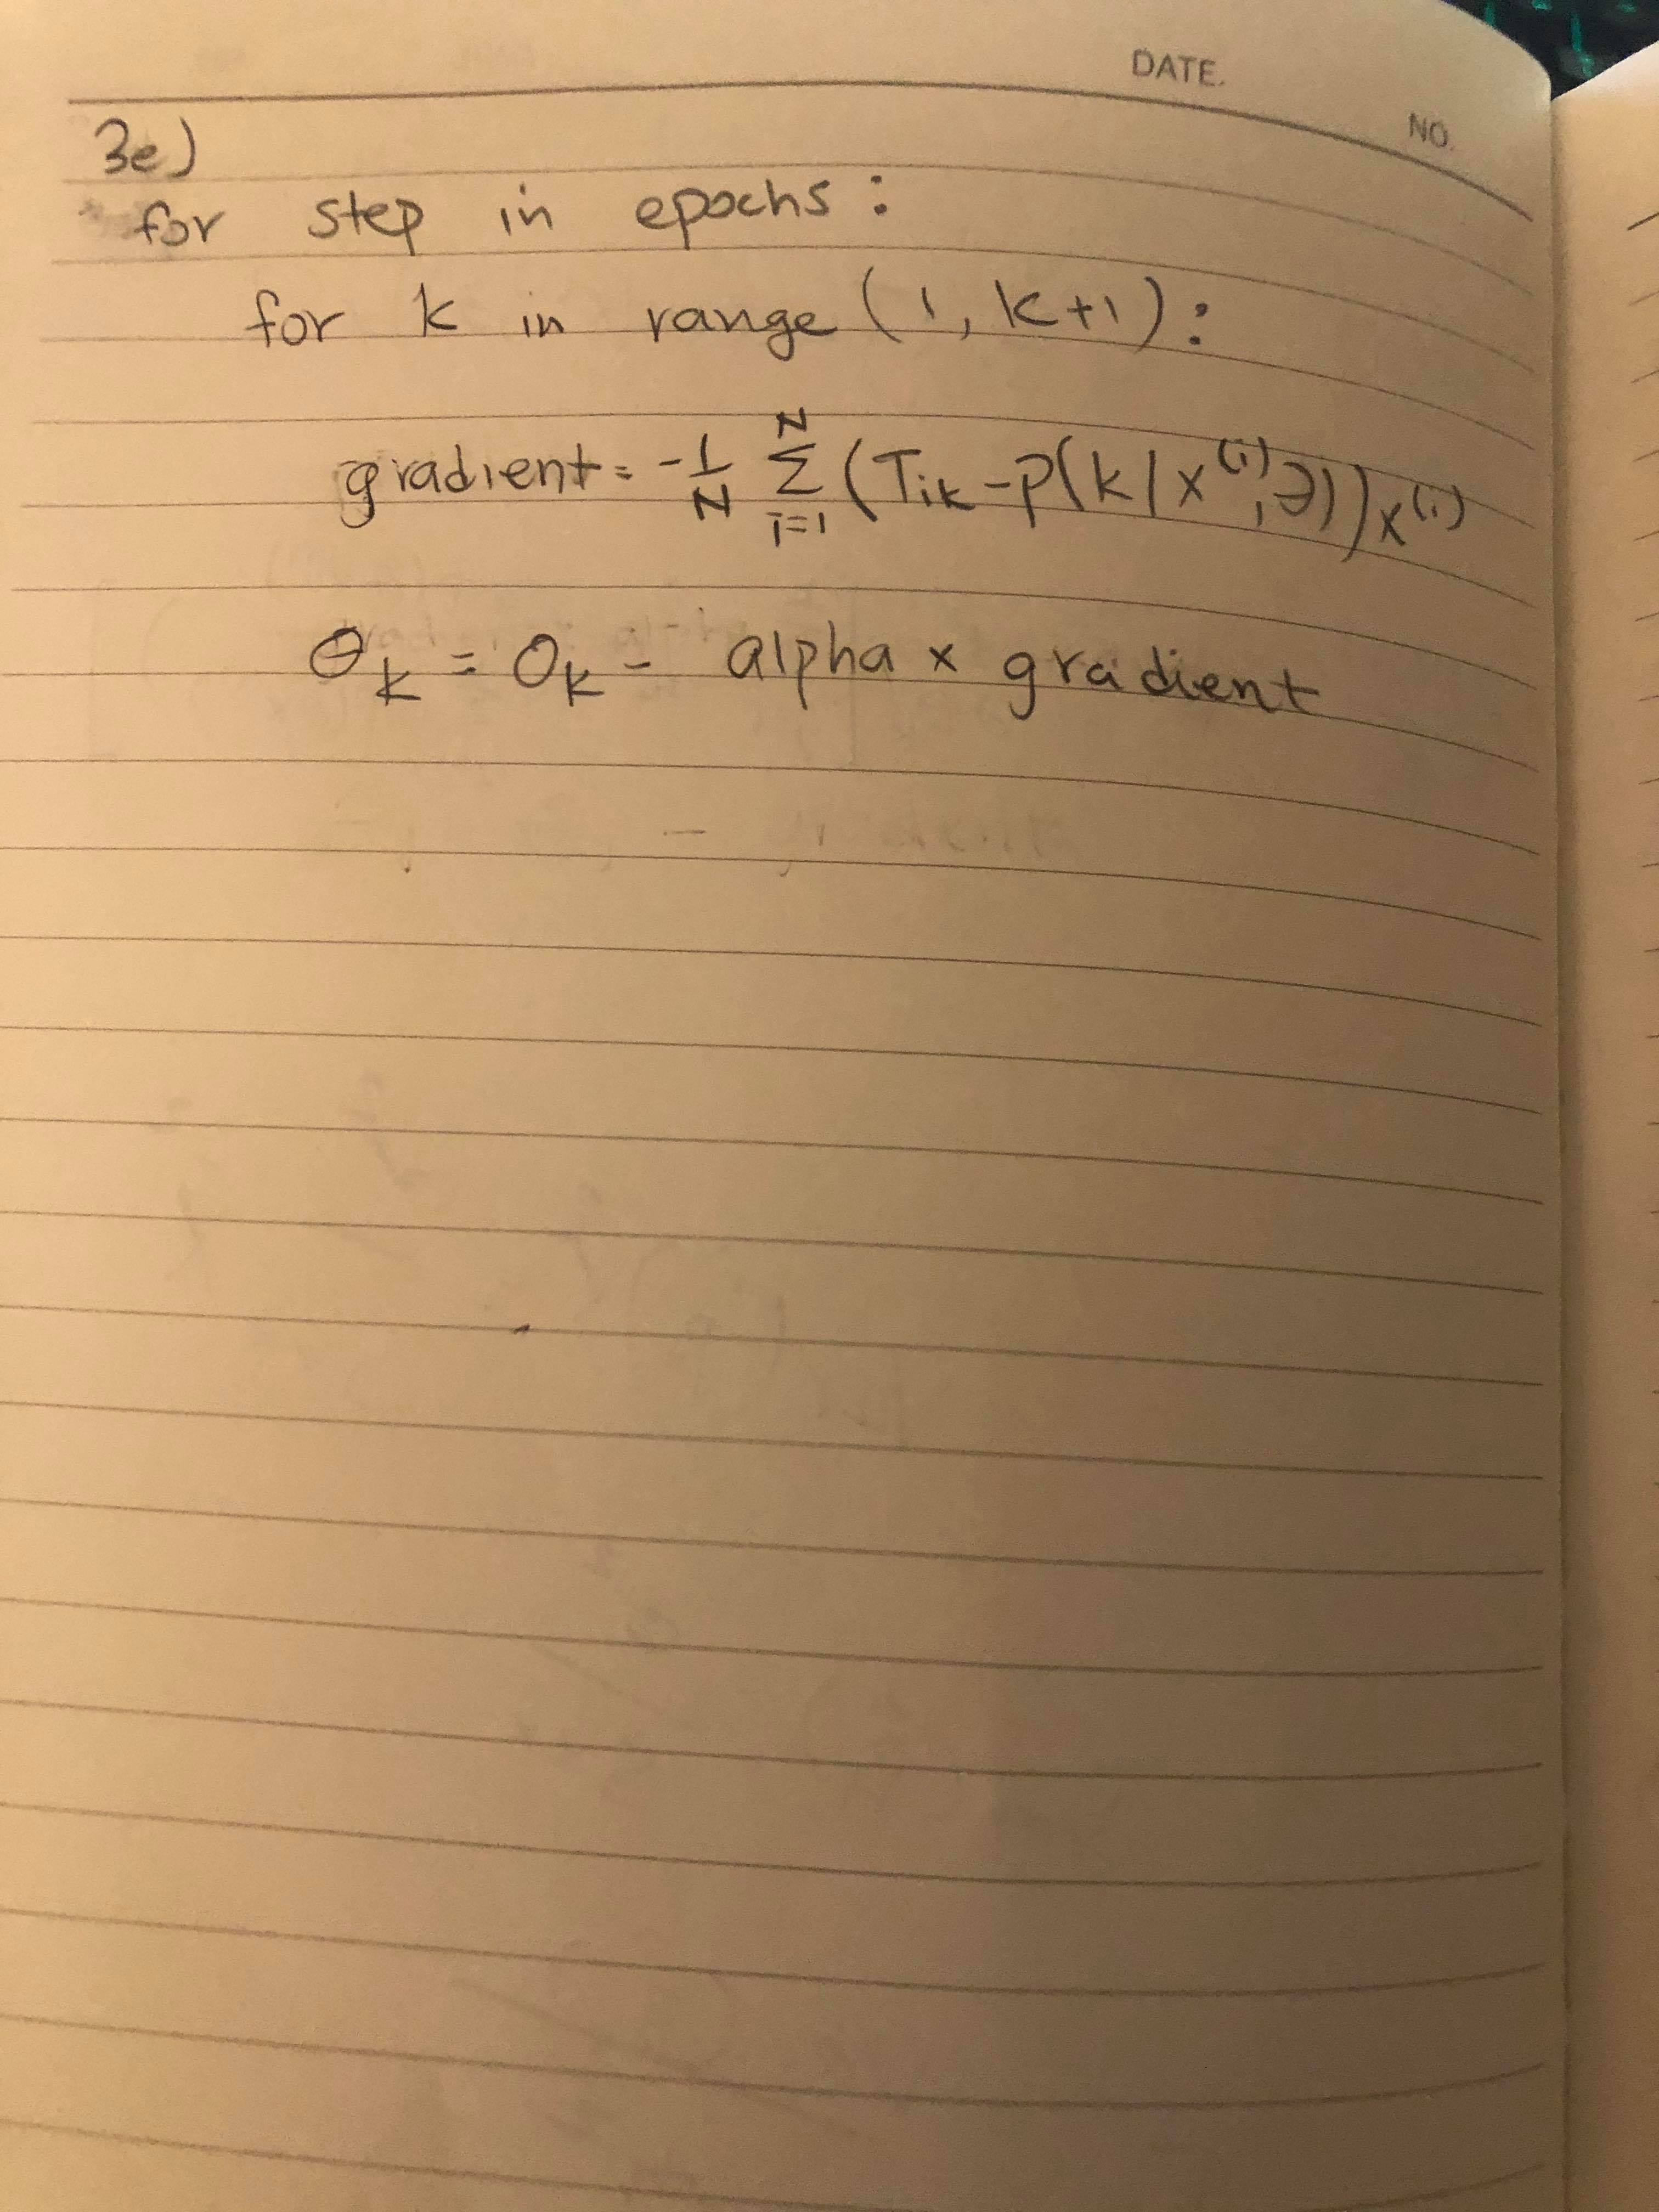 DATE.
NO.
3e)
for step in epochs:
for k in range (1, K+1):
gradient = -1/N Σ_{i=1}^{N} (T_{ik} - p(k | x^{(i)}; Θ)) x^{(i)}
Θ_k = Θ_k - alpha x gradient